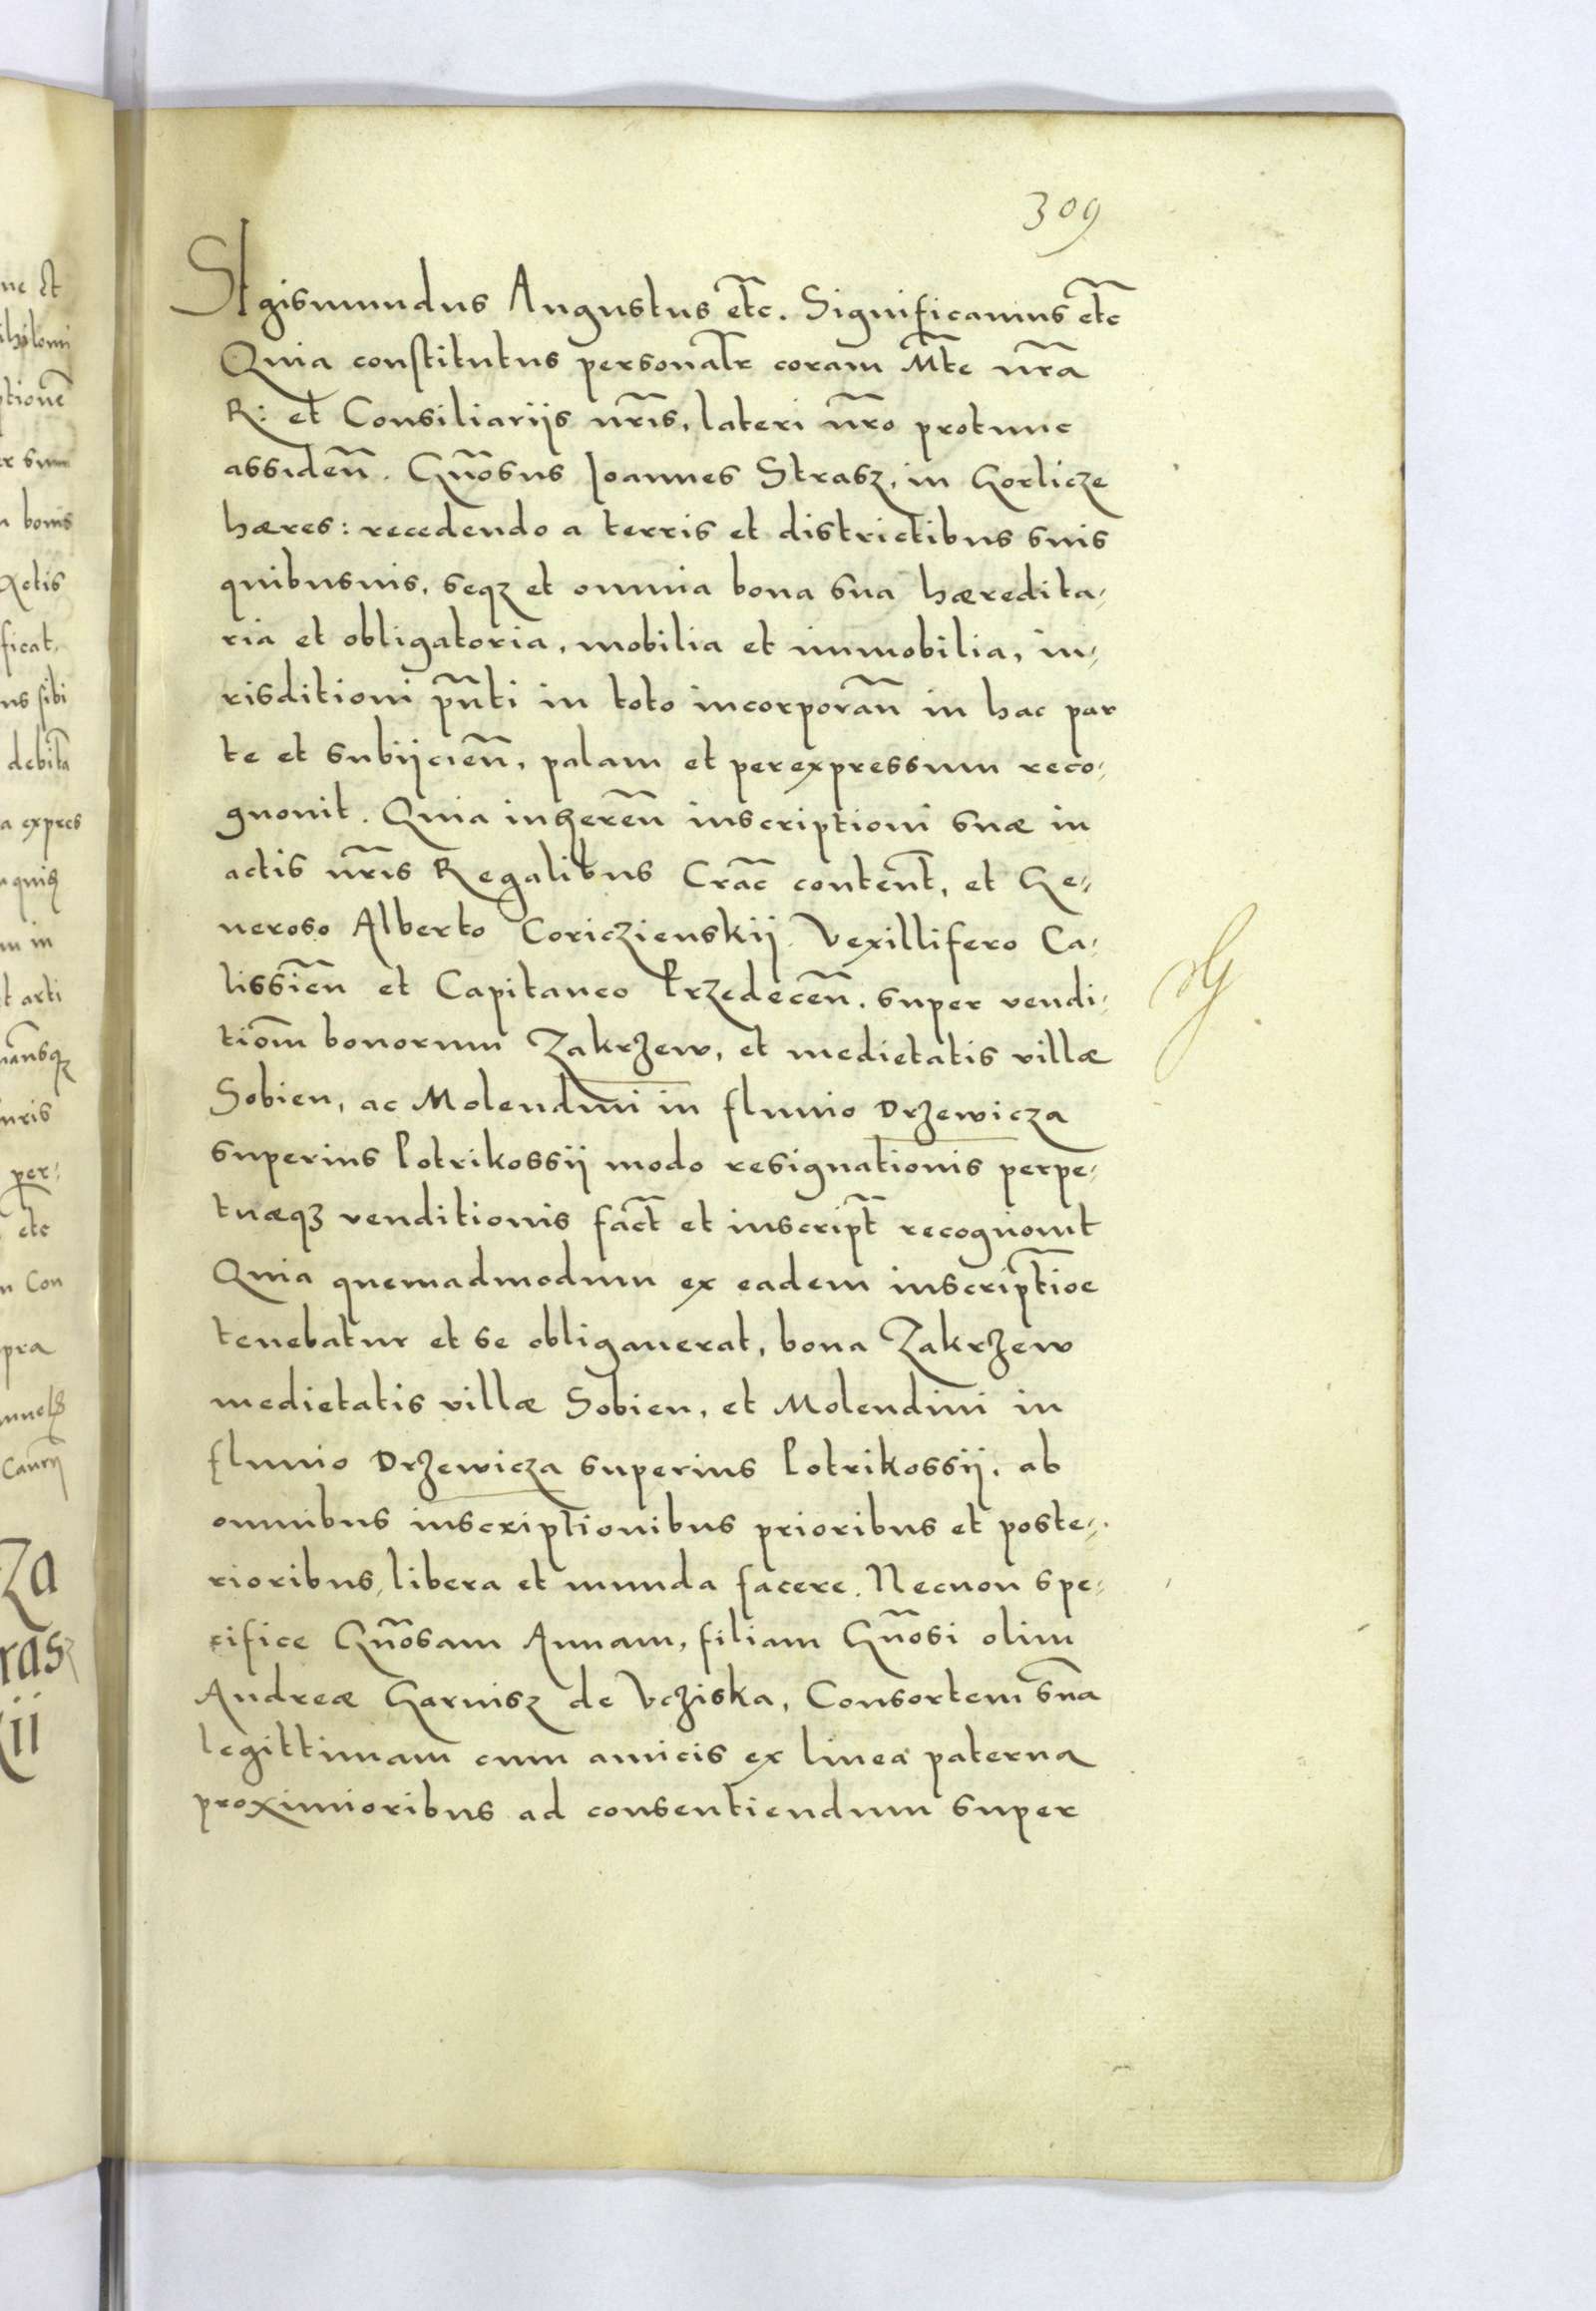 309
Sigismundus Augustus etc. Significamus etc
Quia constitutus personalr coram Mte nra
R: et Consiliarijs nris, lateri nro protunc
assiden. Gnosus Joannes Strasz, in Gorlicze
hæres: recedendo a terris et districtibus suis
quibusuis, seqz et omnia bona sua hæredita-
ria et obligatoria, mobilia et immobilia, iu-
risditioni pnti in toto incorporan in hac par
te et subijcien, palam et perexpressum reco-
gnouit. Quia inheren inscriptioni suæ in
actis nris Regalibus Crac content, et Ge-
neroso Alberto Coriczienskij Vexillifero Ca-
lissien et Capitaneo Przedecen. super vendi-
tiom bonorum Zakrzew, et medietatis villæ
Sobien, ac Molendini in fluuio Drzewicza
superius Potrikossij modo resignationis perpe-
tuæqz venditionis fact et inscript recognouit
Quia quemadmodum ex eadem inscriptioe
tenebatur et se obligauerat, bona Zakrzew
medietatis villæ Sobien, et Molendini in
fluuio Drzewicza superius Potrikossij. ab
omnibus inscriptionibus prioribus et poste-
rioribus, libera et munda facere. Necnon spe-
cifice Gnosam Annam, filiam Gnosi olim
Andreæ Garnisz de Vcziska, Consortem sua
legittimam cum amicis ex linea paterna
proximioribus ad consentiendum super